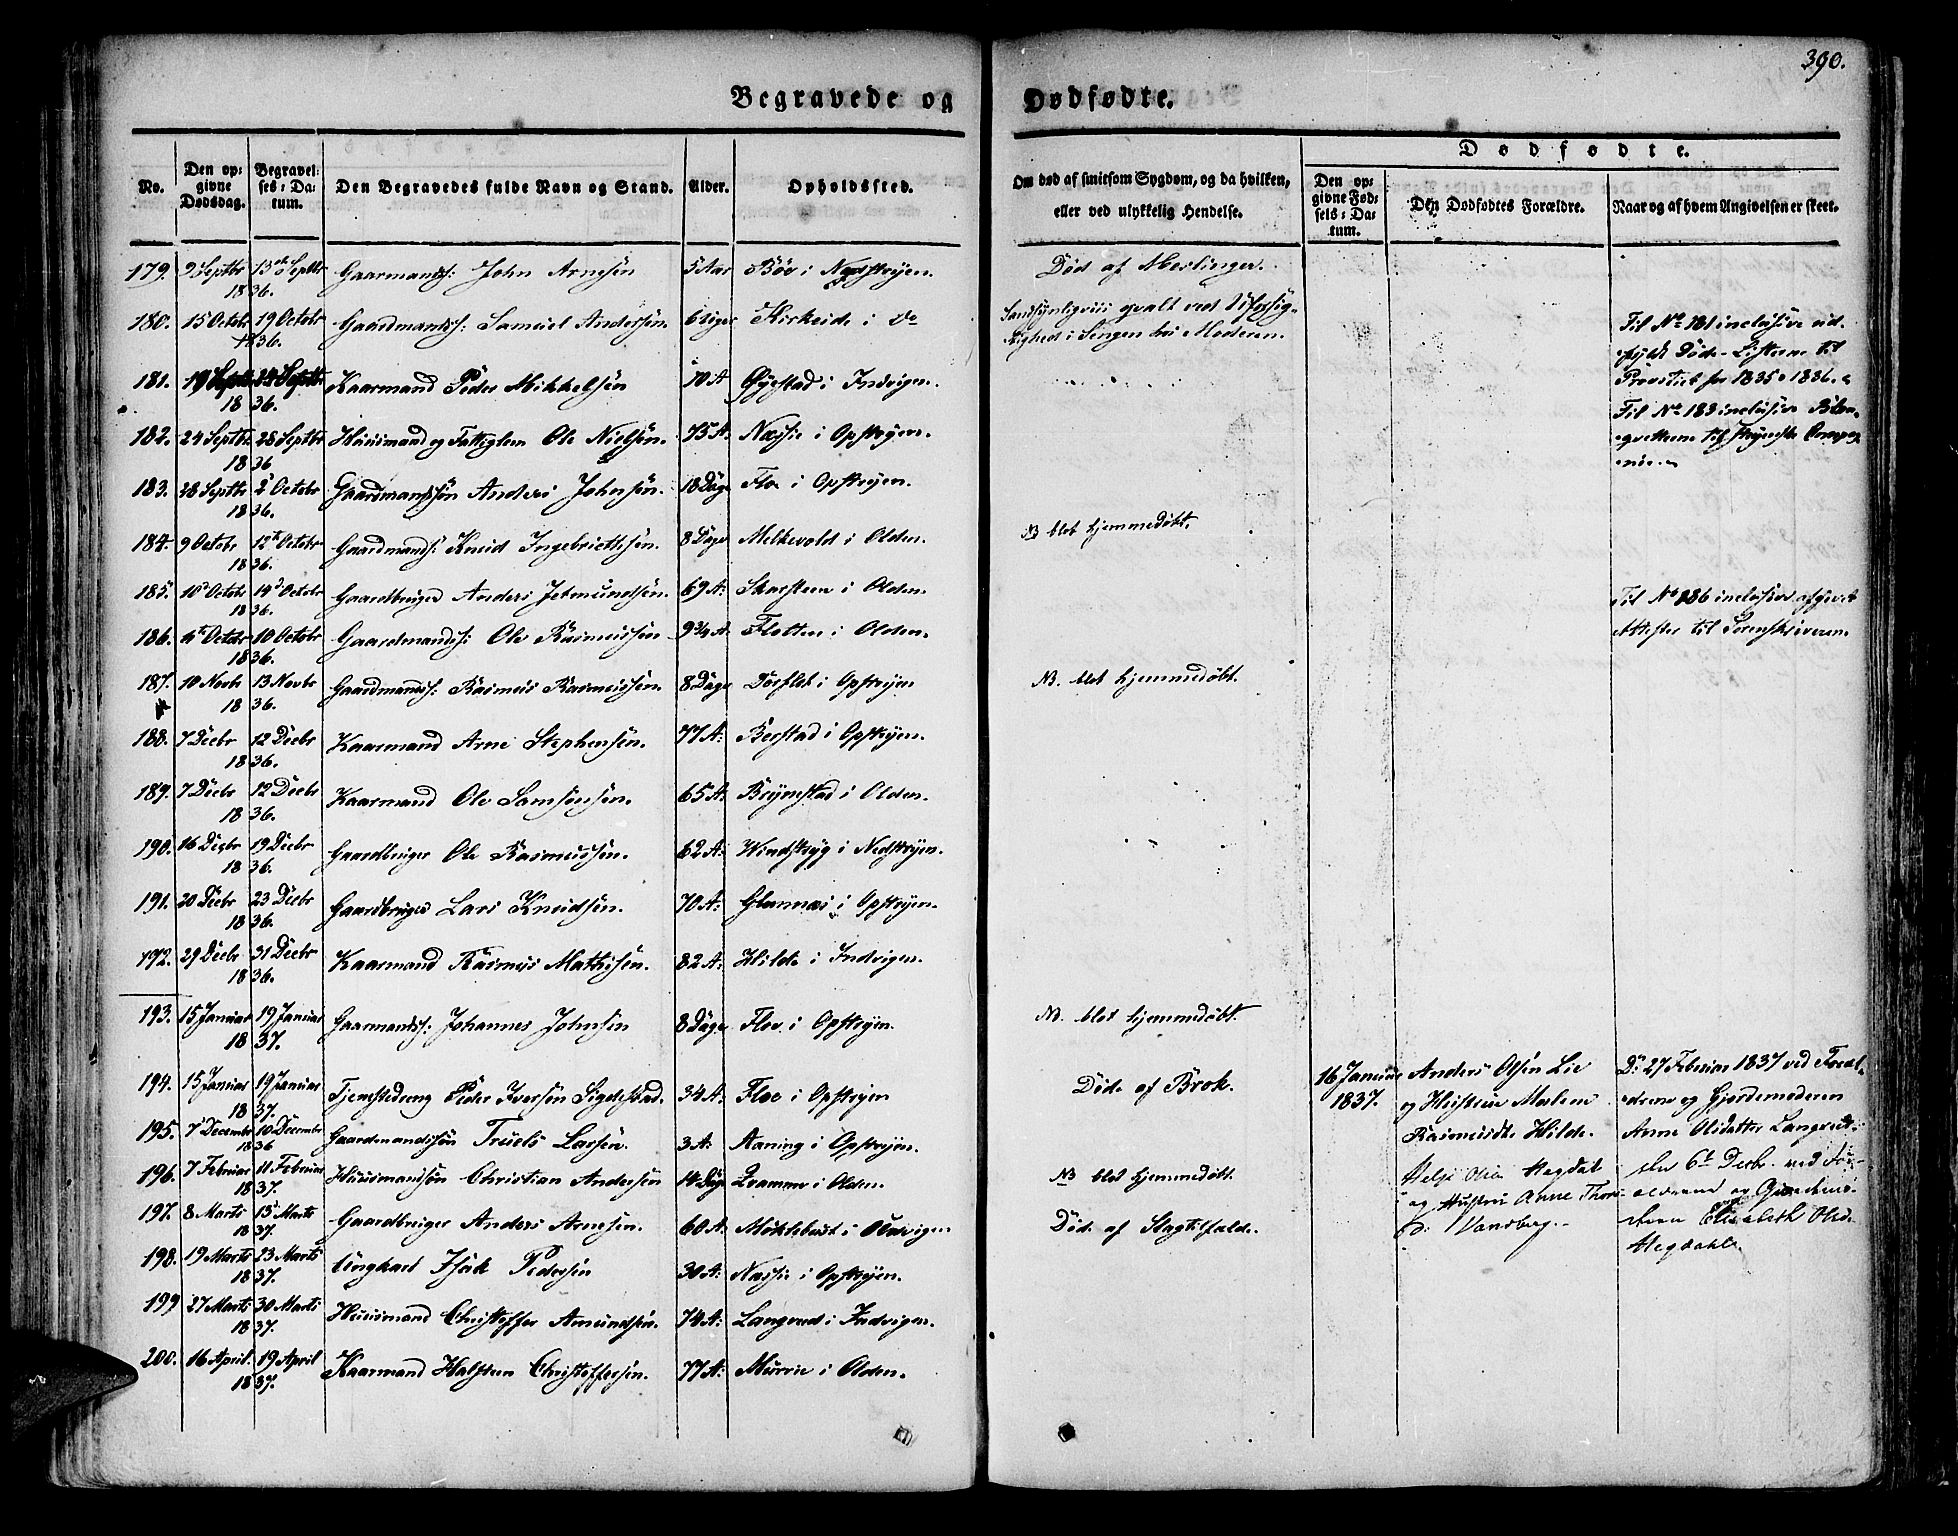 390.
Begravede og Dødfødte.
No.
Den op-
givne
Dødsdag.
Begravel-
ses-Da-
tum.
Den Begravedes fulde Navn og Stand.
Alder.
Opholdssted.
Om død af smitsom Sygdom, og da hvilken,
eller ved ulykkelig Hendelse.
Dødfødte.
Den op-
givne Fød-
sels-Da-
tum.
Den Dødfødtes Forældre.
Naar og af hvem Angivelsen er skeet.
179. 9 Septbr 13de Septbr 1836. Gaarmands: John Arnesen 5 Aar Bøe i Nedstryen. Død af Meslinger.
180. 15 Octobr 19 Octobr 1836. Gaardmands: Samuel Andersen. 6 Uger Kirkeide i do Sandsynligviis qvalt ved Uforsig-
tighed i Sengen hos Moderen.
Til No 181 inclusive ud-
fyldt Døde-Listerne til
Provstiet for 1835 o 1836.
181. 19 Septbr 24 Septbr 1836. Kaarmand Peder Mikkelsen 70 A Øyestad i Indvigen.
Til No 183 inclusive
182. 24 Septbr 28 Septbr 1836 Huusmand og Fattiglem Ole Nielsen. 75 A: Næsje i Opstryen.
183. 28 Septbr 2 Octobr 1836. Gaardmandssøn Anders Johnsen. 18 Dage Floe i Opstryen.
184. 9 Octobr 12te Octobr 1836. Gaardmands: Knud Ingebrigtsen. 8 Dage Melkevold i Olden. NB blot hjemmedøbt.
185. 10de Octobr 14de Octobr 1836. Gaardbruger Anders Jetmundsen. 69 A: Skarsteen i Olden.
Til No 186 inclusive afgivet
Attester til Sorenskriveren.
186. 4de Octobr 10 Octobr 1836. Gaardmands: Ole Rasmussen 9¾ A Flotten i Olden.
187. 10 Novbr 13 Novbr 1836. Gaardmands: Rasmus Rasmussen. 8 Dage Torflot i Opstryen NB. blot hjemmedøbt.
188. 7 Decbr 12 Decbr 1836. Kaarmand Arne Stephensen. 77 A: Berstad i Opstryen.
189. 7 Decbr 12 Decbr 1836. Kaarmand Ole Samsonsen. 65 A: Brynestad i Olden.
190. 16 Decbr 19 Decbr 1836. Gaardbruger Ole Rasmussen. 62 A: Windstryg i Nedstryen.
191. 20 Decbr 23 Decbr 1836. Gaardbruger Lars Knudsen. 70 A: Glomnæs i Opstryen.
192. 29 Decbr 31 Decbr 1836. Kaarmand Rasmus Mathisen. 82 A: Hilde i Indvigen.
193. 15 Januar 19 Januar 1837. Gaarmands: Johannes Johnsen 8 Dage Floe i Opstryen. NB. blot hjemmedøbt.
194. 15 Januar 19 Januar 1837. Tjenstedreng Peder Iversen Sigdestad. 34 A: Floe i Opstryen Døde af Brok.
16 Januar
1837.
Anders Olsen Lie
og Hustrue Malene
Rasmusdtr Hilde.
D: 27 Februar 1837 ved Foræl-
drene og Gjordemoderen
Anne Olsdatter Langvat.
195. 7 Decembr 10 Decembr 1836 Gaardmandssøn Truels Larsen. 3 A: Aaning i Opstryen.
196. 7 Februar 11 Februar 1837. Huusmandsøn Christian Andersen 14 Dage Bramme i Olden. NB blot hjemmedøbt.
Helje Olsen Hegdal
og Hustru Anne
den 6te Decbr. ved For-
ældrene og Gjordemo-
deren Elisabeth Olsd.
Hegdahl.
197. 8 Marts 15 Marts 1837. Gaardbruger Anders Arnesen. 60 A: Mokkebust i Indvigen. Død af Slagtilfælde.
198. 19 Marts 23 Marts 1837. Ungkarl Isak Pedersen 30 A: Næsje i Opstryen.
199 27 Marts 30 Marts 1837. Huusmand Christoffer Amundsen. 74 A: Langvud i Indvigen.
200. 16 April. 19 April 1837. Kaarmand Halsteen Christoffersen. 77 A: Murrie i Olden.